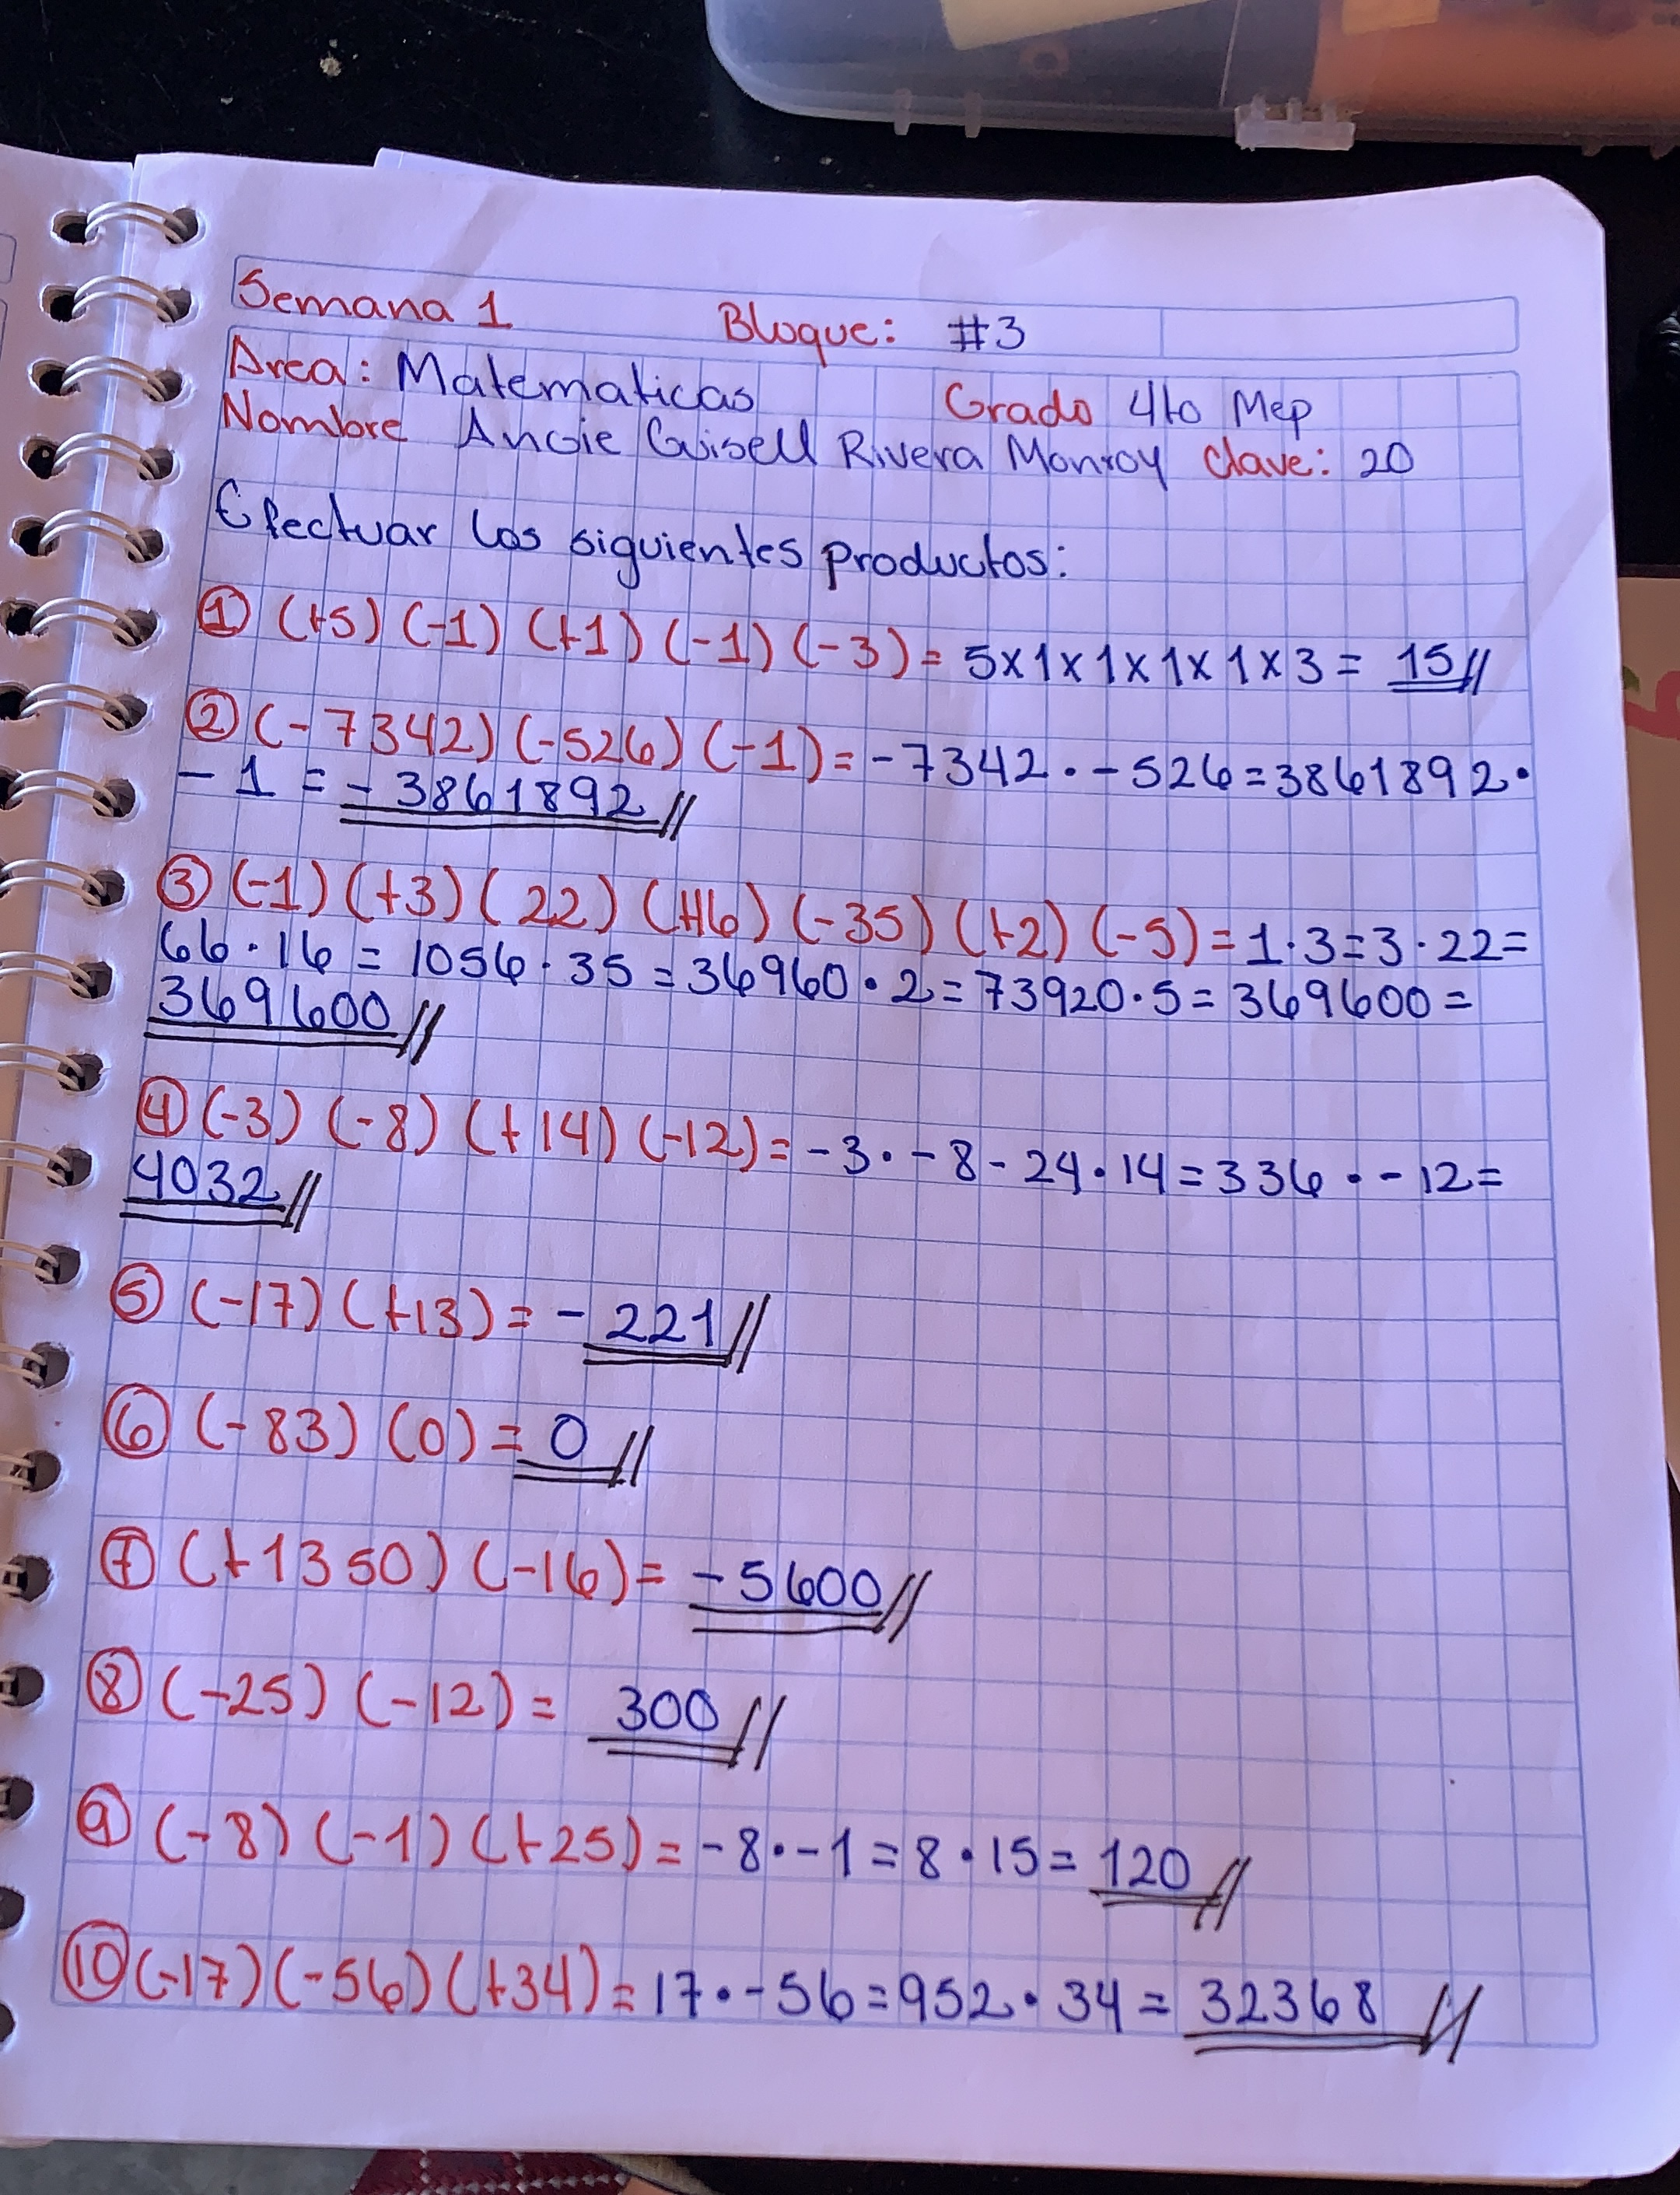 Semana 1 Bloque: #3
Area: Matematicas Grado 4to Mep
Nombre Angie Guisell Rivera Monroy Clave: 20
Efectuar los siguientes productos:
① (+5) (-1) (+1) (-1) (-3) = 5x1x1x1x1x3 = 15//
② (-7342) (-526) (-1) = -7342 · -526 = 3861892 ·
-1 = -3861892//
③ (-1) (+3) (22) (+16) (-35) (+2) (-5) = 1·3=3·22=
66·16 = 1056·35 = 36960·2 = 73920·5 = 369600 =
369600//
④ (-3) (-8) (+14) (-12) = -3·-8-24·14=336·-12=
4032//
⑤ (-17) (+13) = -221//
⑥ (-83) (0) = 0//
⑦ (+1350) (-16) = -5600//
⑧ (-25) (-12) = 300//
⑨ (-8) (-1) (+25) = -8·-1=8·15= 120//
⑩ (-17) (-56) (+34) = 17·-56=952·34= 32368//